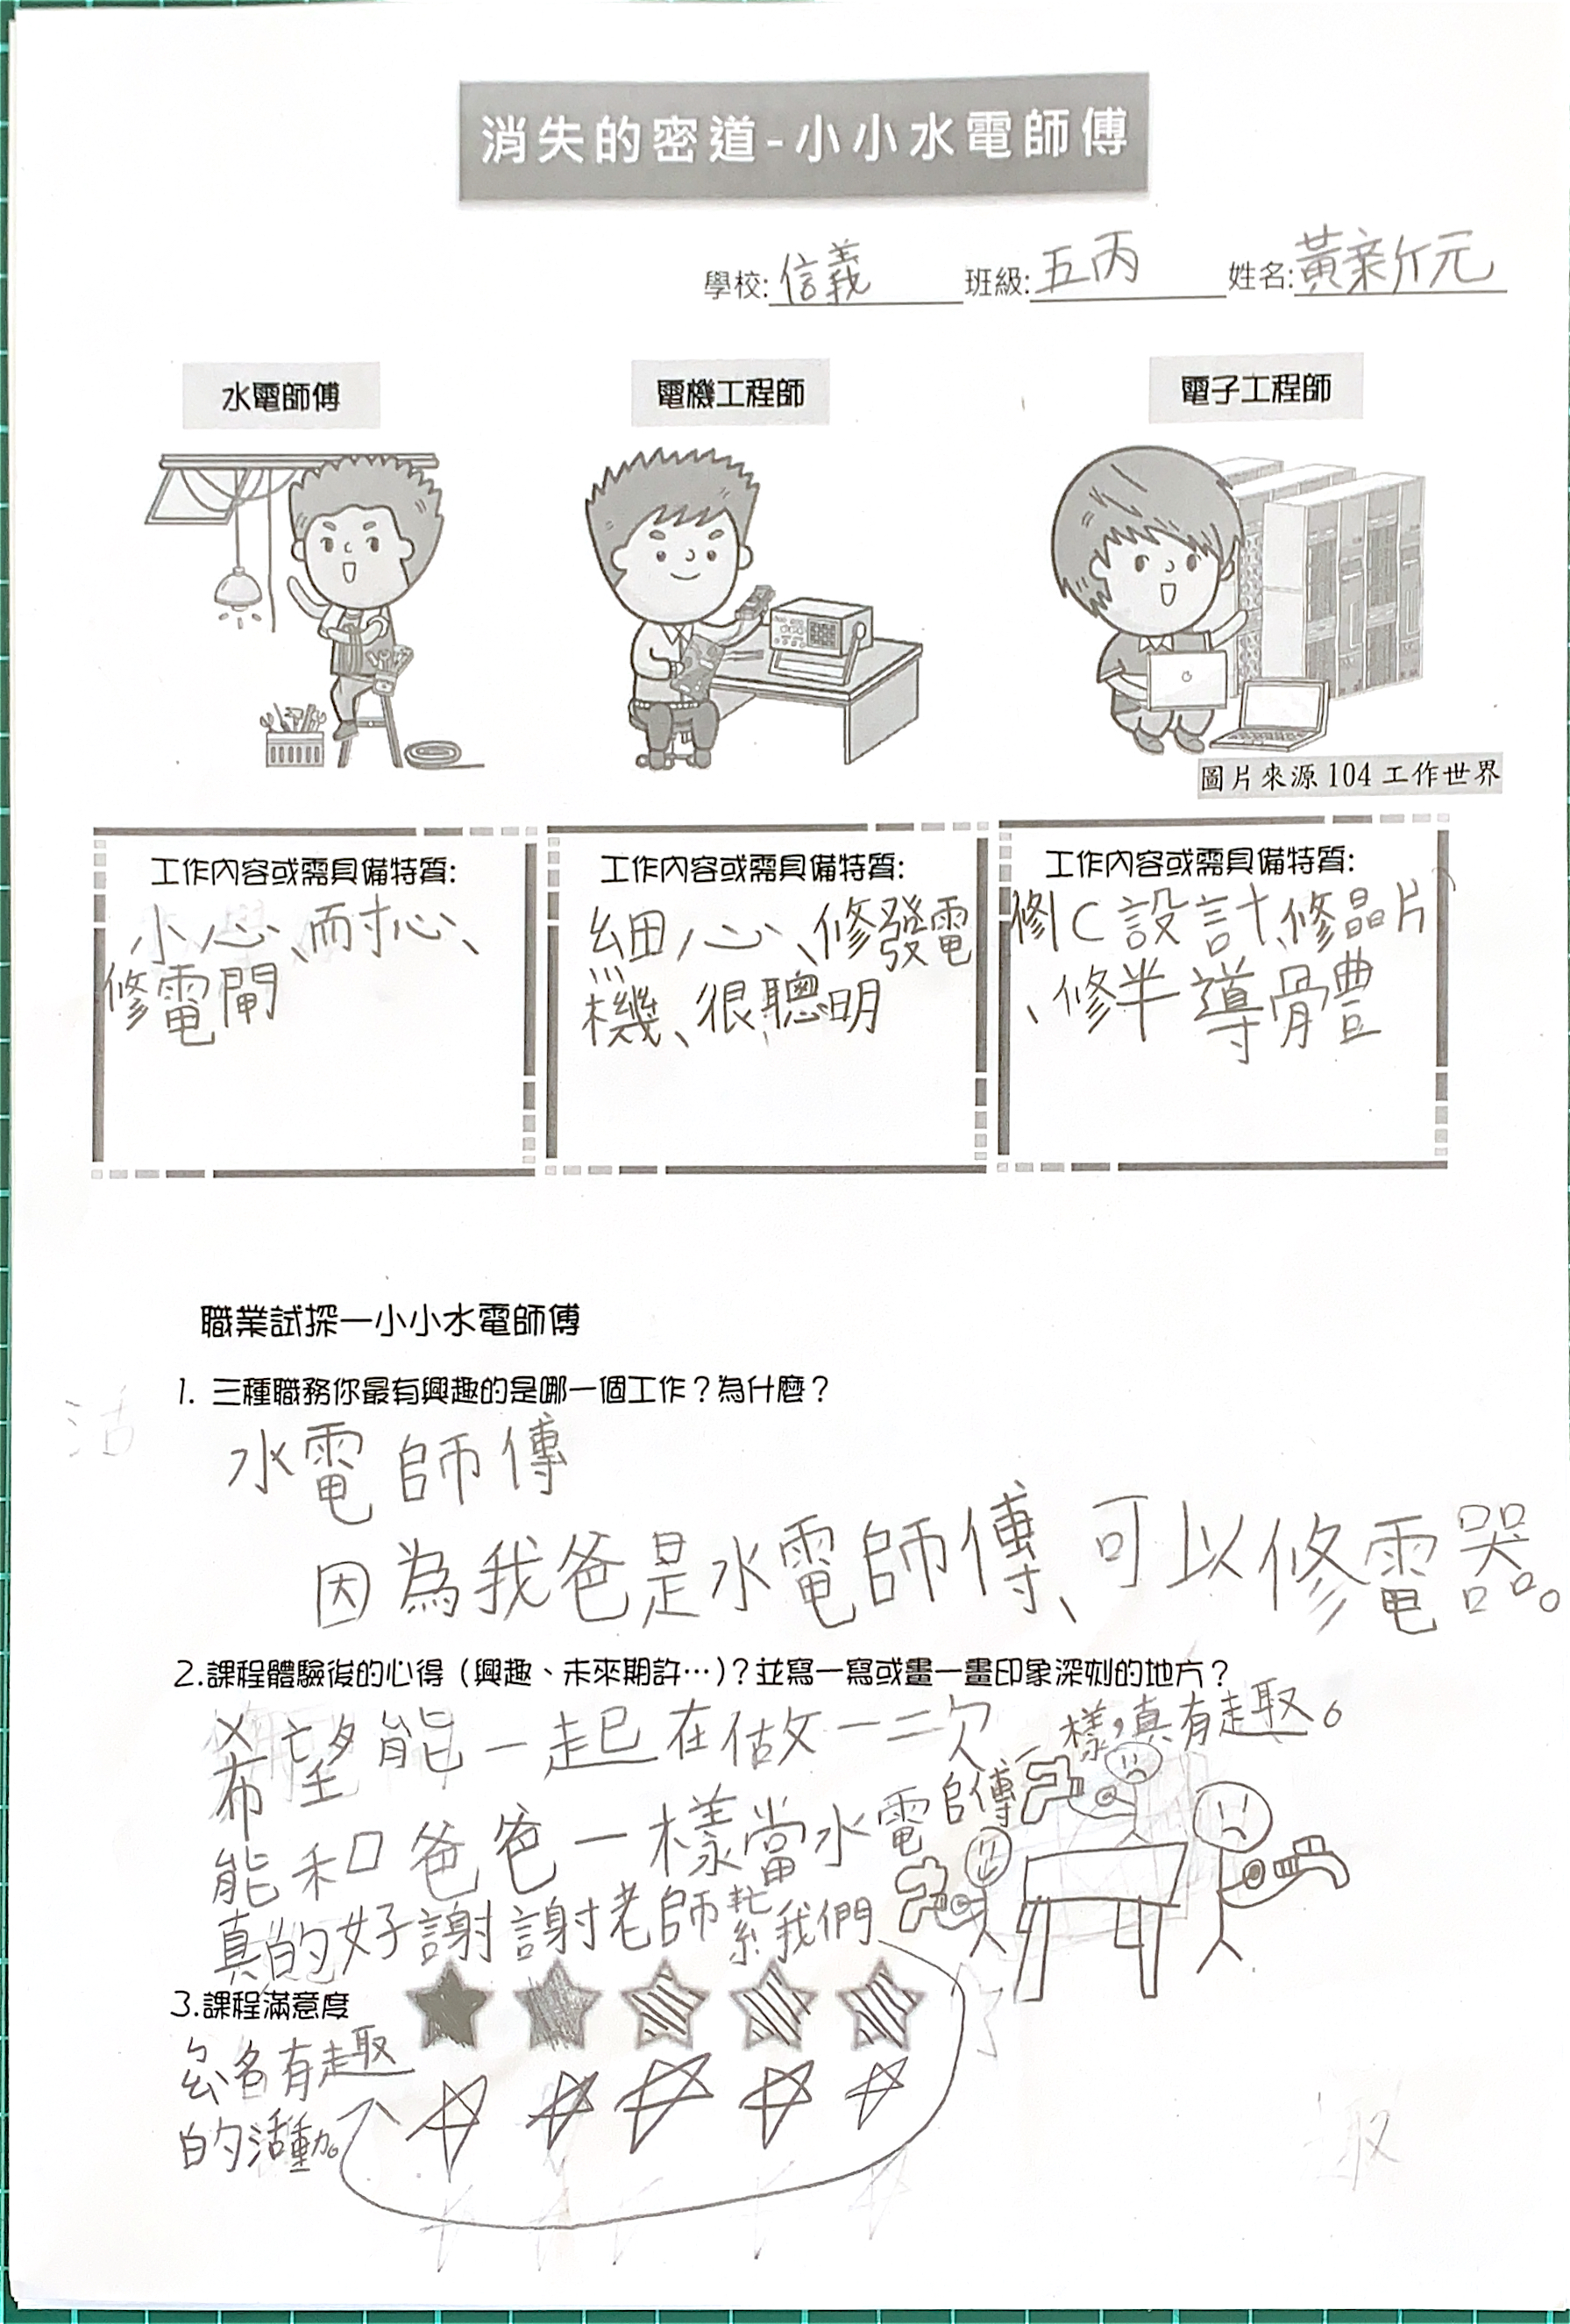 消失的密道-小小水電師傅
學校:信義 班級:五丙 姓名:黃新元
水電師傅 電機工程師 電子工程師
圖片來源104工作世界
工作內容或需具備特質:
小心、耐心、
修電閘
工作內容或需具備特質:
細心、修發電
機、很聰明
工作內容或需具備特質:
修IC設計、修晶片
、修半導體
職業試探—小小水電師傅
1. 三種職務你最有興趣的是哪一個工作?為什麼?
水電師傅
因為我爸是水電師傅、可以修電器。
2.課程體驗後的心得(興趣、未來期許…)?並寫一寫或畫一畫印象深刻的地方?
希望能一起在做一二次
能和爸爸一樣當水電師傅一樣,真有趣。
真的好謝謝老師 我們
3.課程滿意度
有趣
的活動。
活
趣